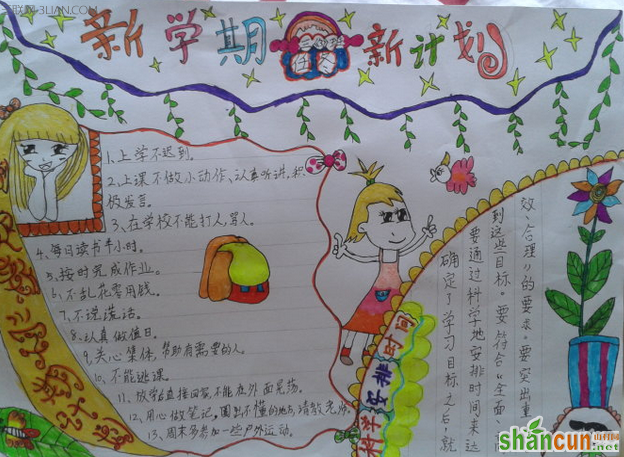 新学期 新计划
1、上学不迟到。
2、上课不做小动作、认真听讲、积
极发言。
3、在学校不能打人,骂人。
4、每日读书半小时。
5、按时完成作业。
6、不乱花零用钱。
7、不说谎话。
8、认真做值日。
9、关心集体,帮助有需要的人。
10、不能逃课。
11、放学后直接回家,不能在外面晃荡。
12、用心做笔记,圈出不懂的地方,请教老师。
13、周末多参加一些户外运动。
科学安排时间
确定了学习目标之后,就
要通过科学地安排时间来达
到这些目标。要符合“全面、
效、合理”的要求。要突出重
shancun
.net